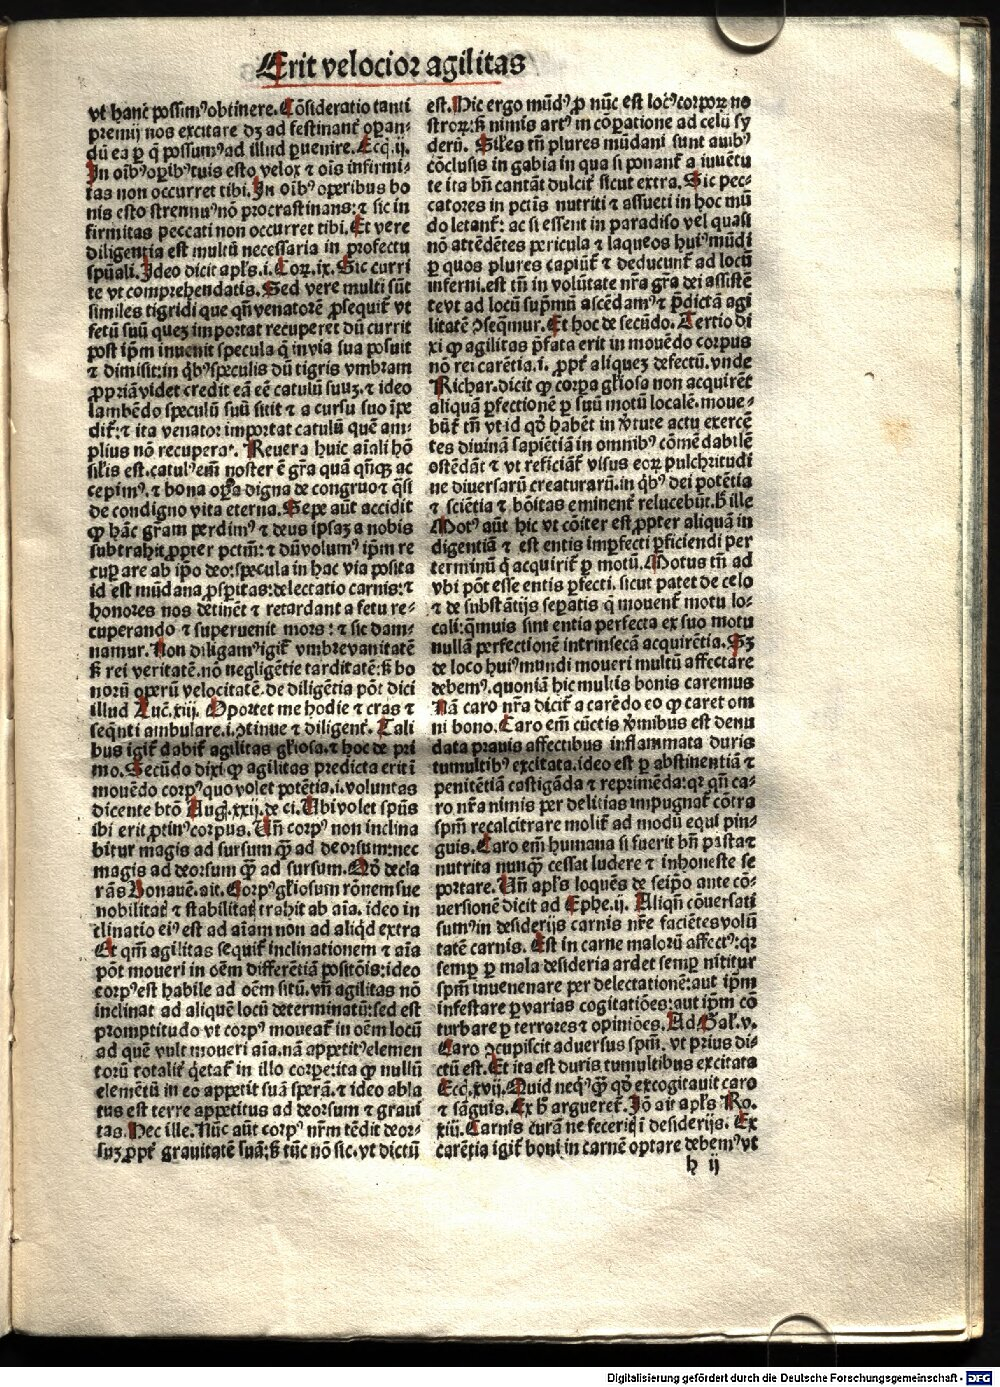 Erit velocior agilitas
vt hanc̄ possim⁹ obtinere. Cōsideratio tanti
premij nos excitare dꝫ ad festinant̄ oꝑan-
dū ea ꝑ q̄ possum⁹ ad illud ꝑuenire. Eccī. ij.
In oīb⁹ oꝑib⁹ tuis esto velox ⁊ oīs infirmi-
tas non occurret tibi. In oīb⁹ operibus bo
nis esto strennu⁹ nō procrastinans: ⁊ sic in
firmitas peccati non occurret tibi. Et vere
diligentia est multū necessaria in profectu
spūali. Ideo dicit apl̄s .i. Coꝝ. ix. Sic curri
te vt comprehendatis. Sed vere multi sūt
similes tigridi que qn̄ venatorē ꝓsequit̄ vt
fetū suū queꝫ importat recuperet dū currit
post ip̄m inuenit specula q̄ in via sua posuit
⁊ dimisit: in qb⁹ speculis dū tigris vmbram
ꝓpriā videt credit eā eē catulū suuꝫ. ⁊ ideo
lambēdo speculū suū sitit ⁊ a cursu suo īpe
dit̄: ⁊ ita venator importat catulū quē am-
plius nō recuperaᷣ. Reuera huic aīali hō
sil̄is est. catul⁹ em̄ noster ē gr̄a quā qn̄qꝫ ac
cepim⁹. ⁊ bona oꝑa digna de congruo ⁊ q̄si
de condigno vita eterna. Sepe aūt accidit
ꝙ hāc gr̄am perdim⁹ ⁊ deus ipsaꝫ a nobis
subtrahit ꝓpter pctm̄: ⁊ dū volum⁹ ip̄m re
cuꝑare ab ip̄o deo: specula in hac via posita
id est mūdana ꝓsꝑitas: delectatio carnis: ⁊
honores nos detinēt ⁊ retardant a fetu re-
cuperando ⁊ superuenit mors: ⁊ sic dam-
namur. Non diligam⁹ igit̄ vmbre vanitatē
ꝫ rei veritatē. nō negligētie tarditatē: ꝫ bo
norū operū velocitatē. de diligētia pōt dici
illud Luc̄. xiij. Oportet me hodie ⁊ cras ⁊
seq̄nti ambulare. i. ꝯtinue ⁊ diligent̄. Tali
bus igit̄ dabit̄ agilitas gl̄iosa. ⁊ hoc de pri
mo. Secūdo dixi ꝙ agilitas predicta erit ī
mouēdo corp⁹ quo volet potētia. i. voluntas
dicente btō Aug. xxij. de ci. Ubi volet spūs
ibi erit ꝓtin⁹ corpus. Un̄ corp⁹ non inclina
bitur magis ad sursum q̄ꝫ ad deorsum: nec
magis ad deorsum q̄ꝫ ad sursum. Qd̄ decla
rās Bonauē. ait. Corp⁹ gl̄iosum rōnem sue
nobilitat̄ ⁊ stabilitat̄ trahit ab aīa. ideo in
clinatio ei⁹ est ad aīam non ad aliqd extra
Et qm̄ agilitas sequit̄ inclinationem ⁊ aīa
pōt moueri in oēm differētiā positōis: ideo
corp⁹ est habile ad oēm sitū. vn̄ agilitas nō
inclinat ad aliquē locū determinatū: sed est
promptitudo vt corp⁹ moueat̄ in oēm locū
ad quē vult moueri aīa. nā appetit⁹ elemen
torū totalit̄ q̄etat̄ in illo corpe: ita ꝙ nullū
elemētū in eo appetit suā sperā. ⁊ ideo abla
tus est terre appetitus ad deorsum ⁊ graui
tas. Hec ille. Nūc aūt corp⁹ nr̄m tēdit deor-
suꝫ ꝓpt̄ grauitatē suā: ꝫ tūc nō sic. vt dictū
est. Hic ergo mūd⁹ ꝑ nūc est loc⁹ corpoꝝ no
stroꝝ: ꝫ nimis art⁹ in cōꝑatione ad celū sy
derū. Sil̄es tn̄ plures mūdani sunt auib⁹
cōclusis in gabia in qua si ponant̄ a iuuētu
te ita bn̄ cantāt dulcit̄ sicut extra. Sic pec-
catores in pctīs nutriti ⁊ assueti in hoc mū
do letant̄: ac si essent in paradiso vel quasi
nō attēdētes pericula ⁊ laqueos hui⁹ mūdi
ꝑ quos plures capiūt̄ ⁊ deducunt̄ ad locū
inferni. est tn̄ in volūtate nr̄a gr̄a dei assistē
te vt ad locū supmū ascēdam⁹ ⁊ p̄dictā agi
litatē ꝯseq̄mur. Et hoc de secūdo. Tertio di
xi ꝙ agilitas p̄fata erit in mouēdo corpus
nō rei carētia. i. ꝓpt̄ aliqueꝫ defectū. vnde
Richar. dicit ꝙ corpa gl̄iosa non acquirēt
aliquā ꝑfectionē ꝑ suū motū localē. moue-
būt̄ tn̄ vt id qd̄ habēt in v̄tute actu exercē
tes diuinā sapiētiā in omnib⁹ cōmēdabilē
ostēdāt ⁊ vt reficiāt̄ visus eoꝝ pulchritudi
ne diuersarū creaturarū. in qb⁹ dei potētia
⁊ sciētia ⁊ bōitas eminent̄ relucebūt. h̄ ille
Mot⁹ aūt hic vt cōiter est ꝓpter aliquā in
digentiā ⁊ est entis imꝑfecti ꝑficiendi per
terminū q̄ acquirit̄ ꝑ motū. Motus tn̄ ad
vbi pōt esse entis ꝑfecti. sicut patet de celo
⁊ de substātijs seꝑatis q̄ mouent̄ motu lo-
cali: q̄muis sint entia perfecta ex suo motu
nullā perfectionē intrinsecā acquirētia. Sꝫ
de loco hui⁹ mundi moueri multū affectare
debem⁹. quoniā hic multis bonis caremus
Nā caro nr̄a dicit̄ a carēdo eo ꝙ caret om
ni bono. Caro em̄ cūctis v̄mibus est denu
data prauis affectibus inflammata duris
tumultib⁹ excitata. ideo est ꝑ abstinentiā ⁊
penitētiā castigāda ⁊ reprimēda: qꝛ qn̄ ca-
ro nr̄a nimis per delitias impugnat̄ cōtra
spm̄ recalcitrare molit̄ ad modū equi pin-
guis. Caro em̄ humana si fuerit bn̄ pasta ⁊
nutrita nunq̄ꝫ cessat ludere ⁊ inhoneste se
portare. Un̄ apl̄s loquēs de seip̄o ante cō-
uersionē dicit ad Ephe. ij. Aliqn̄ cōuersati
sum⁹ in desiderijs carnis nr̄e faciētes volū
tatē carnis. Est in carne malorū affect⁹: qꝛ
semꝑ ꝑ mala desideria ardet semꝑ nītitur
spm̄ inuenenare per delectationē: aut ip̄m
infestare ꝑ varias cogitatiōes: aut ip̄m cō
turbare ꝑ terrores ⁊ opiniōes. Ad Gal̄. v.
Caro ꝯcupiscit aduersus spm̄. vt prius di-
ctū est. Et ita est duris tumultibus excitata
Eccī. xvij. Quid neq⁹ q̄ꝫ qd̄ excogitauit caro
⁊ sāguis. Ex h̄ argueret̄. Iō ait apl̄s Ro.
xiij. Carnis curā ne feceritꝭ ī desiderijs. Ex
carētia igit̄ boni in carnē optare debem⁹ vt
h ij
Digitalisierung gefördert durch die Deutsche Forschungsgemeinschaft - DFG